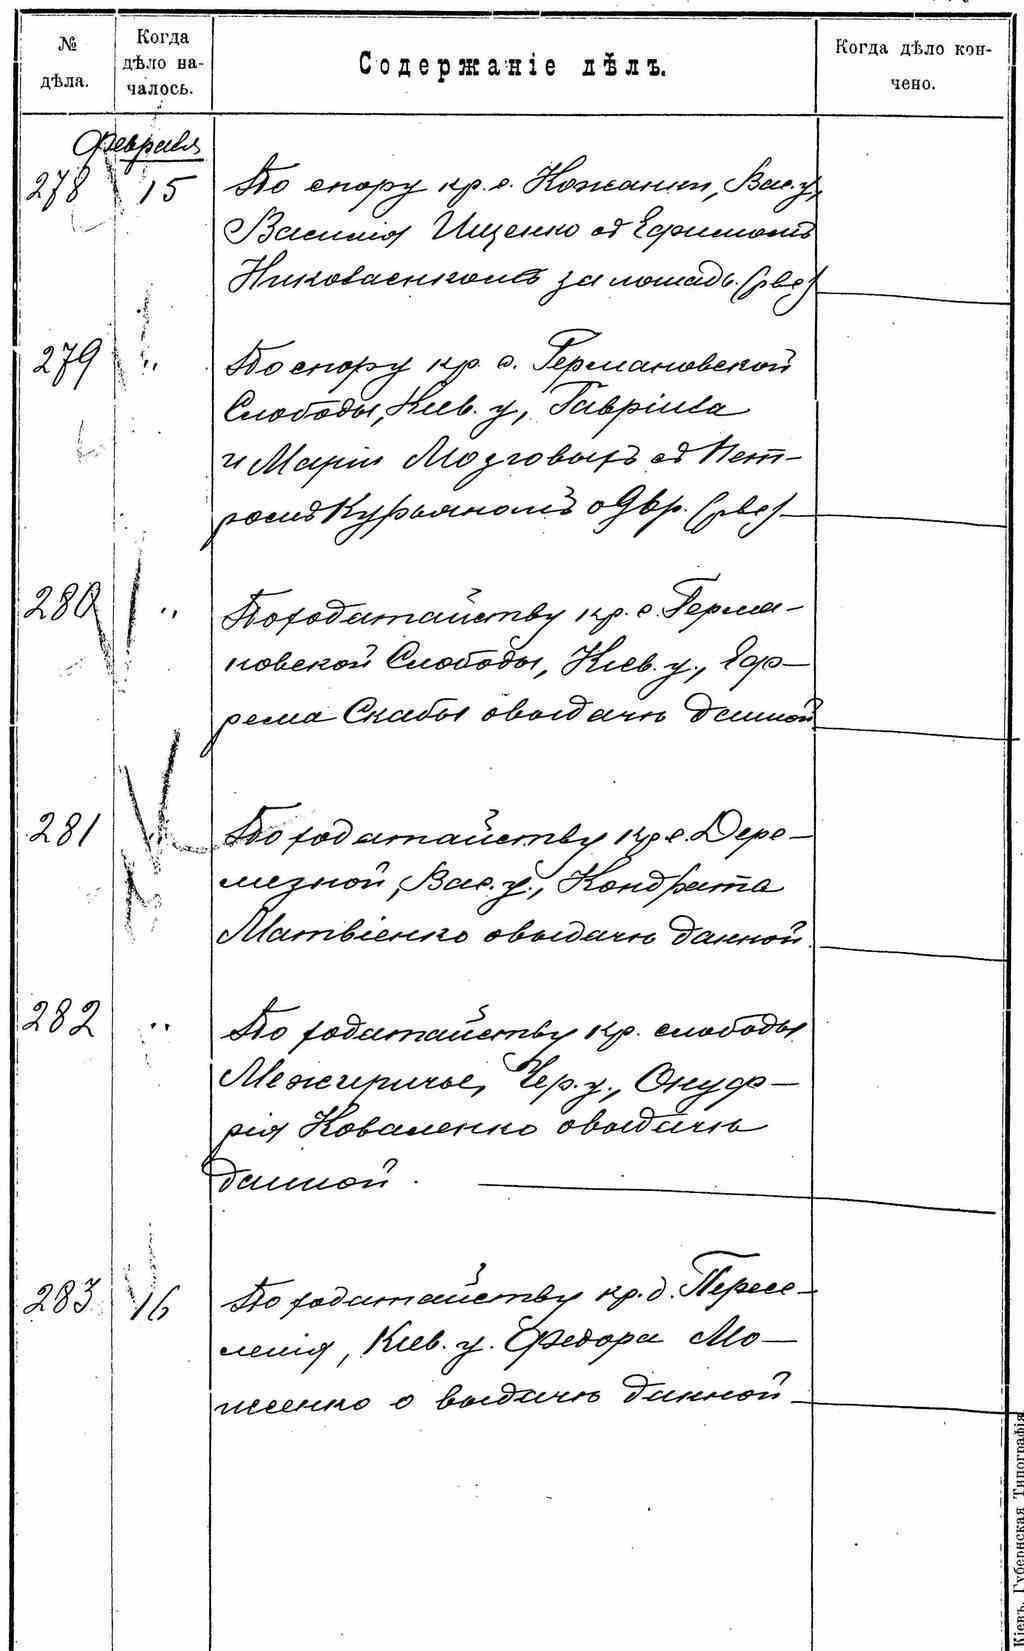 № дѣла.
Когда дѣло на-
чалось.
Содержаніе дѣлъ.
Когда дѣло кон-
чено.
Февраля
278 15 По спору кр. с. Кожанки, Вас. у,
Василія Ищенко съ Ефимомъ
Николаенкомъ за лошадь.
279 " По спору кр. с. Германовской
Слободы, Кіев. у, Гавріила
и Маріи Мозговыхъ съ Пет-
ромъ Курьяномъ о Двр.
280 " По ходатайству кр. с. Герма-
новской Слободы, Кіев. у., Еф-
рема Скабы о выдачѣ данной
281 По ходатайству кр. с. Дере-
мезной, Вас. у., Кондрата
Матвіенко о выдачѣ данной.
282 " По ходатайству кр. слободы
Межиричье, Чер. у., Онуф-
рія Коваленко о выдачѣ
данной.
283 16 По ходатайству кр. д. Пересе-
ленія, Кіев. у. Федора Мо-
женко о выдачѣ данной
Кіевъ. Губернская Типографія